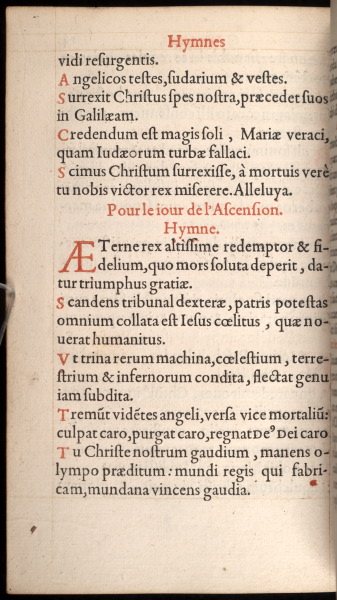 Hymnes
vidi reſurgentis.
Angelicos teſtes, ſudarium & veſtes.
Surrexit Chriſtus ſpes noſtra, præcedet ſuos
in Galilæam.
Credendum eſt magis ſoli , Mariæ veraci,
quam Iudæorum turbæ fallaci.
Scimus Chriſtum ſurrexiſſe, à mortuis verè
tu nobis victor rex miſerere. Alleluya.
Pour le iour de l'Aſcenſion.
Hymne.
ÆTerne rex altiſſime redemptor & fi-
delium, quo mors ſoluta deperit , da-
tur triumphus gratiæ.
Scandens tribunal dexteræ, patris poteſtas
omnium collata eſt Ieſus cœlitus , quæ no-
uerat humanitus.
Vt trina rerum machina, cœleſtium , terre-
ſtrium & infernorum condita, flectat genu
iam ſubdita.
Tremũt vidẽtes angeli, verſa vice mortaliũ:
culpat caro, purgat caro, regnat De⁹ Dei caro
Tu Chriſte noſtrum gaudium , manens o-
lympo præditum : mundi regis qui fabri-
cam, mundana vincens gaudia.